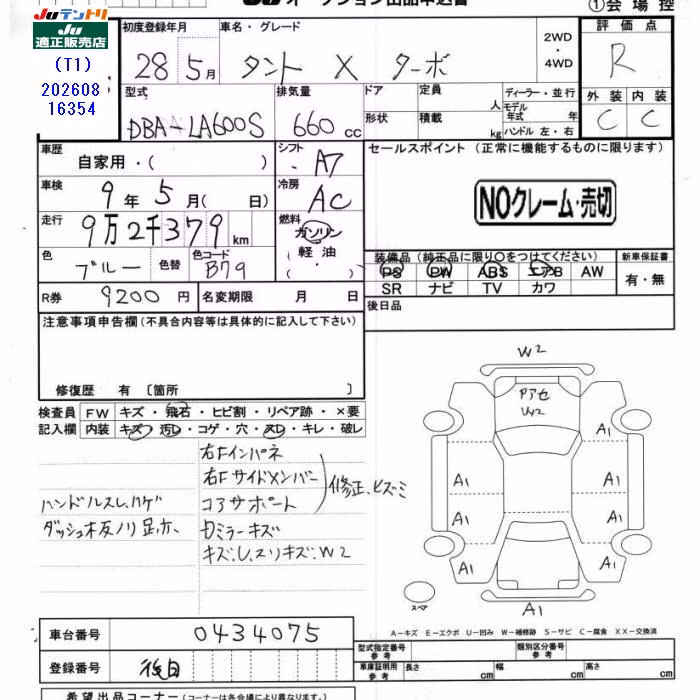 Juテントリ
Ju
適正販売店
(T1)
202608
16354
Ju オークション出品申込書
①会場控
初度登録年月
車名・グレード
2WD
・
4WD
評価点
28 5月
タント X ターボ
R
型式
排気量
ドア
定員
人
ディーラー・並行
モデル
年式 年
外装
内装
DBA-LA600S
660 cc
形状
積載
kg
ハンドル 左・右
C
C
車歴
自家用・( )
シフト
A7
セールスポイント (正常に機能するものに限ります)
車検
9年 5月( 日)
冷房
AC
NOクレーム・売切
走行
9万2千379km
燃料
ガソリン
・
軽油
( ・ )
色
ブルー
色替
色コード
B79
装備品 (純正品に限り○をつけてください)
新車保証書
PS PW ABS エアB AW
SR ナビ TV カワ
有・無
R券
9200円
名変期限 月 日
後日品
注意事項申告欄 (不具合内容等は具体的に記入して下さい)
修復歴 有 〔箇所 〕
検査員
記入欄
FW
キズ・飛石・ヒビ割・リペア跡・×要
内装
キズ・汚レ・コゲ・穴・スレ・キレ・破レ
右Fインパネ
右Fサイドメンバー
コアサポート
修正、ヒズミ
ハンドルスレ、ハゲ
ダッシュ板ノリ足赤
キズ、レ、スリキズ、W2
W2
アアセ
W2
A1
A1
A1
A1
A1
A1
A1
A1
スペア
A－キズ E－エクボ U－凹み W－補修跡 S－サビ C－腐食 XX－交換済
車台番号
0434075
型式指定番号
参考
類別区分番号
参考
登録番号
後日
車庫証明用
参考
長さ cm
幅 cm
高さ cm
希望出品コーナー (コーナーは各会場により異なります。)